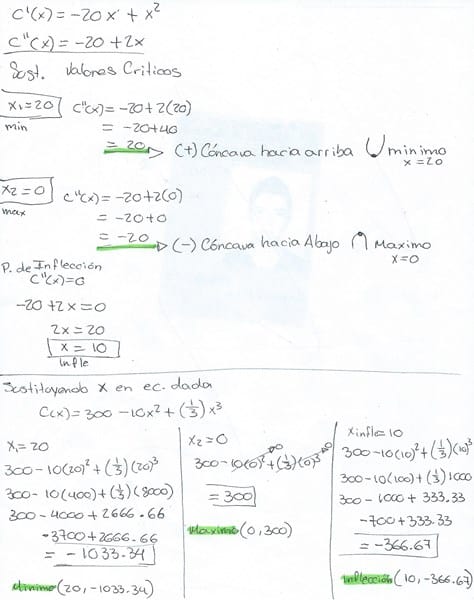 C'(x) = -20x + x²
C''(x) = -20 + 2x
Sust. Valores Criticos
x₁=20 C''(x) = -20+2(20)
min = -20+40
= 20 → (+) Cóncava hacia arriba ∪ minimo
x=20
x₂=0 C''(x) = -20+2(0)
max = -20+0
= -20 → (-) Cóncava hacia Abajo ∩ Maximo
x=0
P. de Inflección
C''(x)=0
-20+2x=0
2x=20
x=10
Infle
Sustituyendo x en ec. dada
C(x) = 300 - 10x² + (1/3)x³
x₁=20
300-10(20)²+(1/3)(20)³
300-10(400)+(1/3)(8000)
300-4000+2666.66
-3700+2666.66
= -1033.34
Minimo (20, -1033.34)
x₂=0
300-10(0)²+(1/3)(0)³
0 0
= 300
Maximo (0,300)
x infle=10
300-10(10)²+(1/3)(10)³
300-10(100)+(1/3)1000
300-1000+333.33
-700+333.33
= -366.67
Inflección (10, -366.67)